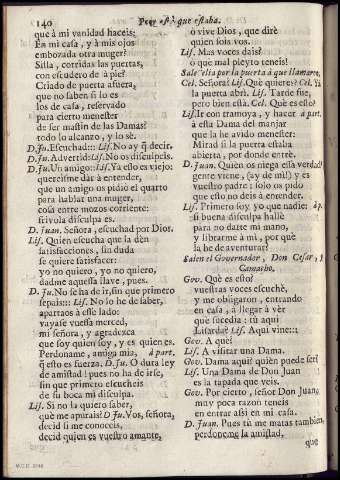 140 Peor està que estaba.
que à mi vanidad haceis:
En mi casa, y à mis ojos
embozada otra muger?
Silla, corridas las puertas,
con escudero de à pie?
Criado de puerta afuera,
que no saben si lo es
los de casa, reservado
para cierto menester
de ser mastin de las Damas?
todo lo alcanzo, y lo sè.
D. Ju. Escuchad::: Lis. No ay q̃ decir.
D. Ju. Advertid: Lis. No os disculpeis.
D. Ju. Un amigo:: Lis. Ya esto es viejo:
quereisme dàr à entender,
que un amigo os pidiò el quarto
para hablar una muger,
cosa entre mozos corriente:
frivola disculpa es.
D. Juan. Señora, escuchad por Dios.
Lis. Quien escucha que la dèn
satisfacciones, sin duda
se quiere satisfacer:
yo no quiero, yo no quiero,
dadme aquessa llave, pues.
D. Ju. No se ha de ir, sin que primero
sepais::: Lis. No lo he de saber,
apartaos à este lado:
vayase vuessa merced,
mi señora, y agradezca
que soy quien soy, y es quien es.
Perdoname, amiga mia, à part.
q̃ esto es fuerza. D. Ju. O dura ley
de amistad! pues no ha de irse,
sin que primero escucheis
de su boca mi disculpa.
Lis. Si no la quiero saber,
què me apurais? D. Ju. Vos, señora,
decid si me conoceis,
decid quien es vuestro amante,
ò vive Dios, que dirè
quien sois vos.
Lis. Mas voces dais?
ò que mal pleyto teneis!
Sale Celia por la puerta à que llamaron.
Cel. Señora? Lis. Què quieres? Cel. Yà
la puerta abrì. Lis. Tarde fue,
pero bien està. Cel. Què es esto?
Lis. Ir con tramoya, y hacer à part.
à esta Dama del manjar
que la he avido menester:
Mirad si la puerta estaba
abierta, por donde entrè.
D. Juan. Quièn os niega essa verdad
gente viene, (ay de mi!) y es
vuestro padre: solo os pido
que esto no deis à entender.
Lis. Primero soy yo que nadie: à p.
si buena disculpa hallè
para no darte mi mano,
y librarme à mi, por què
la he de aventurar?
Salen el Governador, Don Cesar, y
Camacho.
Gov. Què es esto?
vuestras voces escuchè,
y me obligaron, entrando
en casa, à llegar à vèr
què sucedia: tù aqui
Lisarda? Lis. Aqui vine:::
Gov. A què?
Lis. A visitar una Dama.
Gov. Dama aqui? quièn puede ser?
Lis. Una Dama de Don Juan
es la tapada que veis.
Gov. Por cierto, señor Don Juan,
muy poca razon teneis
en entrar assi en mi casa.
D. Juan. Pues tù me matas tambien,
perdoneme la amistad,
que